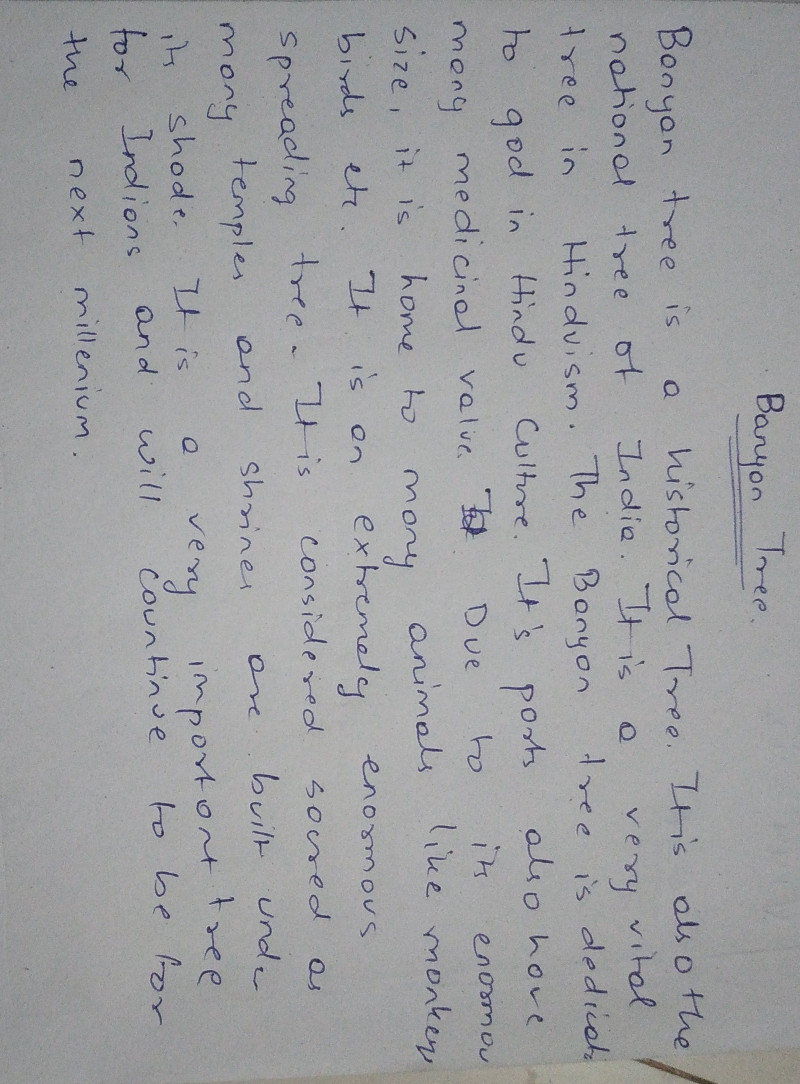 Banyan Tree.
Banyan tree is a historical Tree. It is also the
national tree of India. It is a very vital
tree in Hinduism. The Banyan tree is dedicate
to god in Hindu Culture. It's parts also have
many medicinal value. Due to its enormou
size, it is home to many animals like monkey
birds etc. It is an extremely enormous
spreading tree. It is considered scured as
many temples and shrines are built under
its shade. It is a very important tree
for Indians and will countinue to be for
the next millenium.